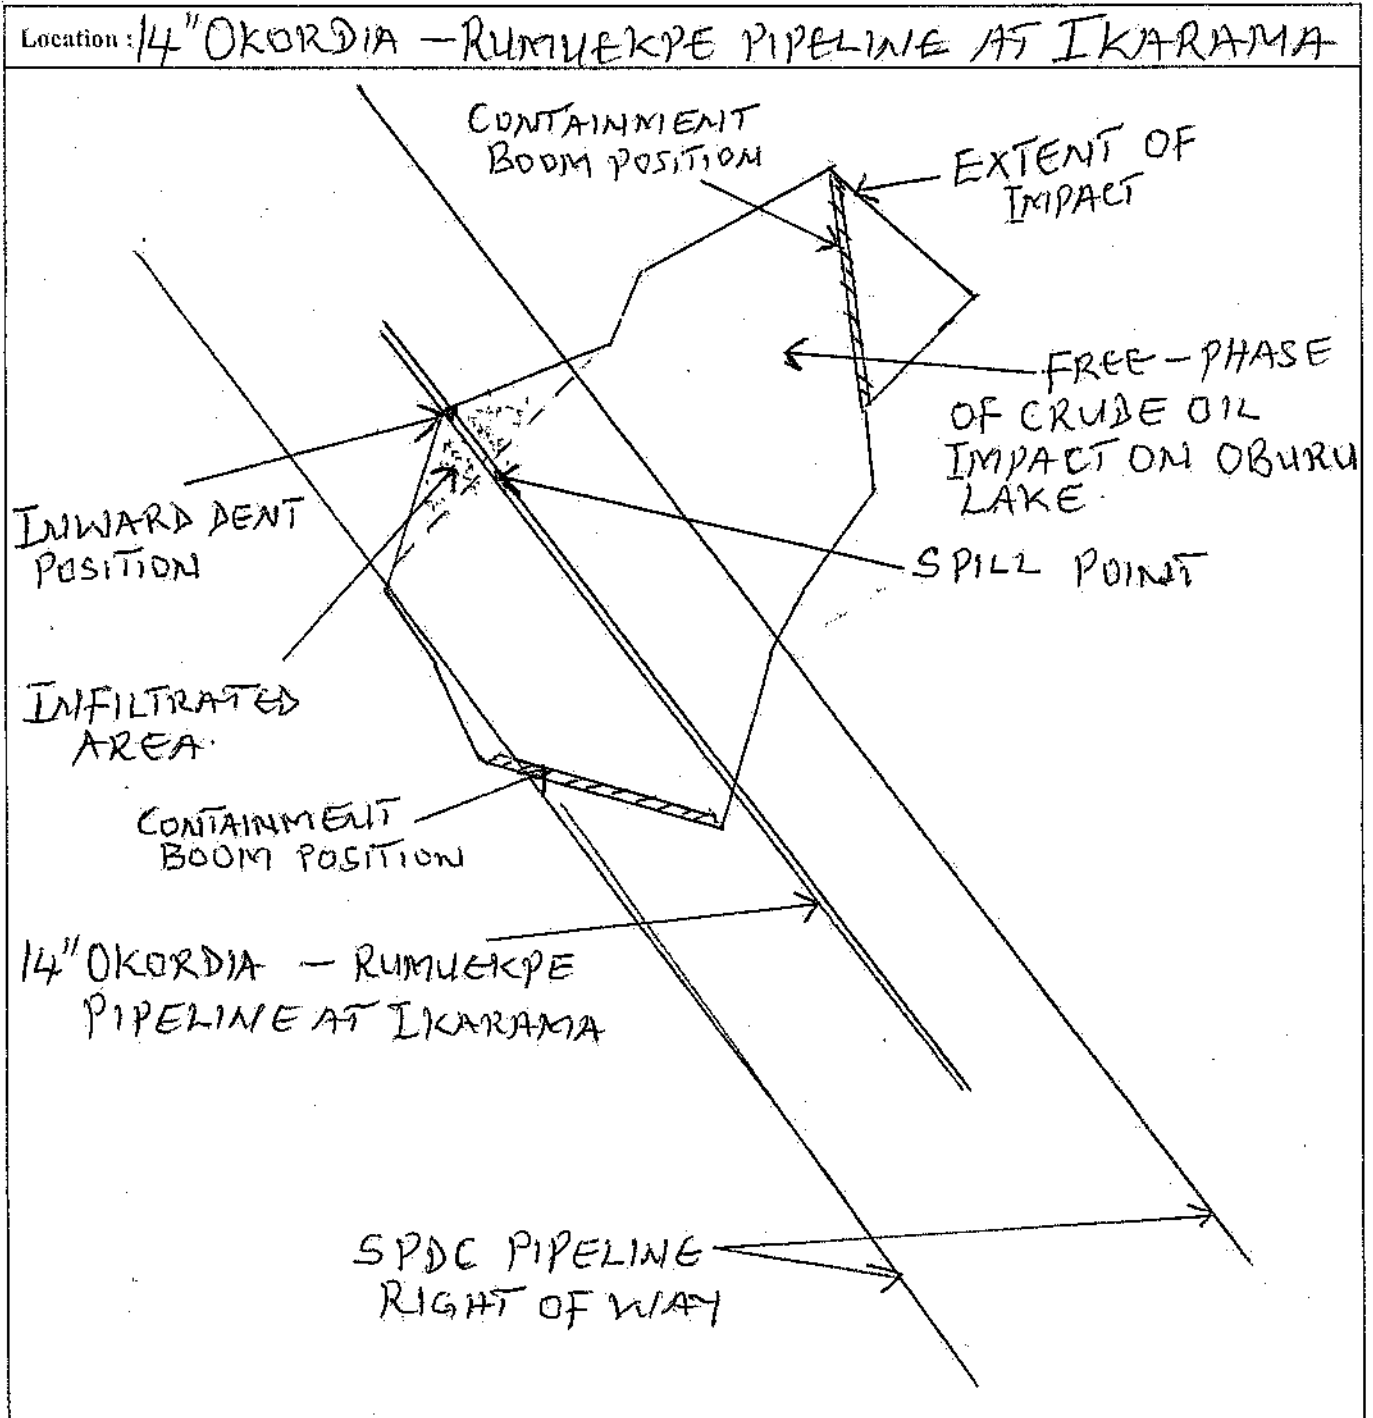 Location : 14" OKORDIA – RUMUEKPE PIPELINE AT IKARAMA
CONTAINMENT
BOOM POSITION
EXTENT OF
IMPACT
FREE – PHASE
OF CRUDE OIL
IMPACT ON OBURU
LAKE.
INWARD DENT
POSITION
SPILL POINT
INFILTRATED
AREA.
CONTAINMENT
BOOM POSITION
14" OKORDIA – RUMUEKPE
PIPELINE AT IKARAMA
SPDC PIPELINE
RIGHT OF WAY